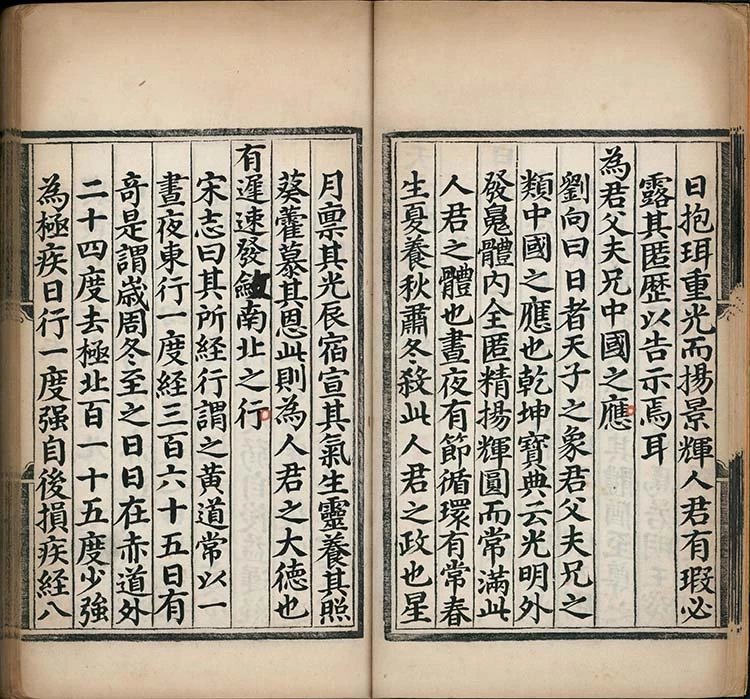 日抱珥重光而揚景輝人君有瑕必
露其匿歷以告示焉耳
為君父夫兄中國之應
劉向曰日者天子之象君父夫兄之
類中國之應也乾坤寶典云光明外
發晃體內全匿精揚輝圓而常滿此
人君之體也晝夜有節循環有常春
生夏養秋肅冬殺此人君之政也星
月禀其光辰宿宣其氣生靈養其照
葵藿慕其恩此則為人君之大德也
有遲速發斂南北之行
宋志曰其所經行謂之黃道常以一
晝夜東行一度經三百六十五日有
奇是謂歲周冬至之日日在赤道外
二十四度去極北百一十五度少強
為極疾日行一度强自後損疾經八